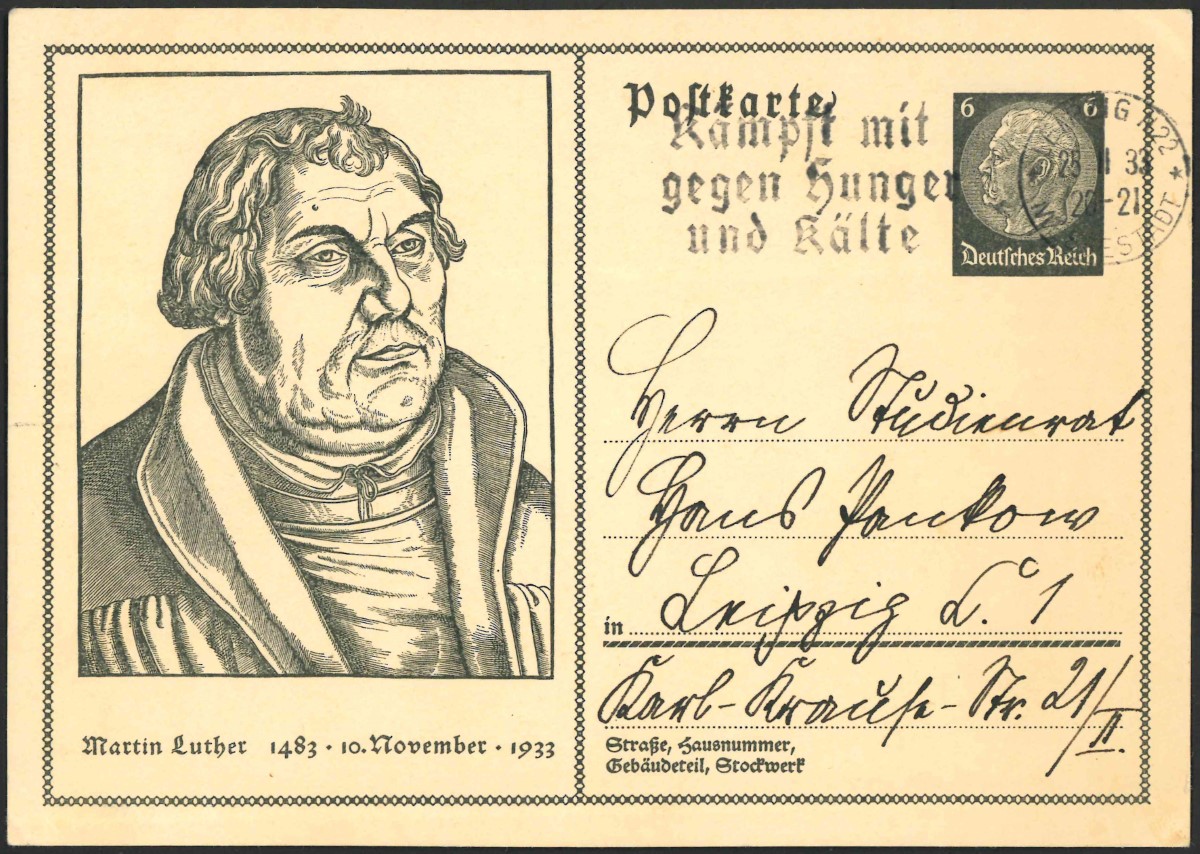 Martin Luther 1483 · 10. November · 1933
Postkarte
Kämpft mit
gegen Hunger
und Kälte
6 6
Deutsches Reich
22
33
20-21
Herrn Studienrat
Hans Pankow
in Leipzig C. 1
Karl-Krause-Str. 21/II.
Straße, Hausnummer,
Gebäudeteil, Stockwerk